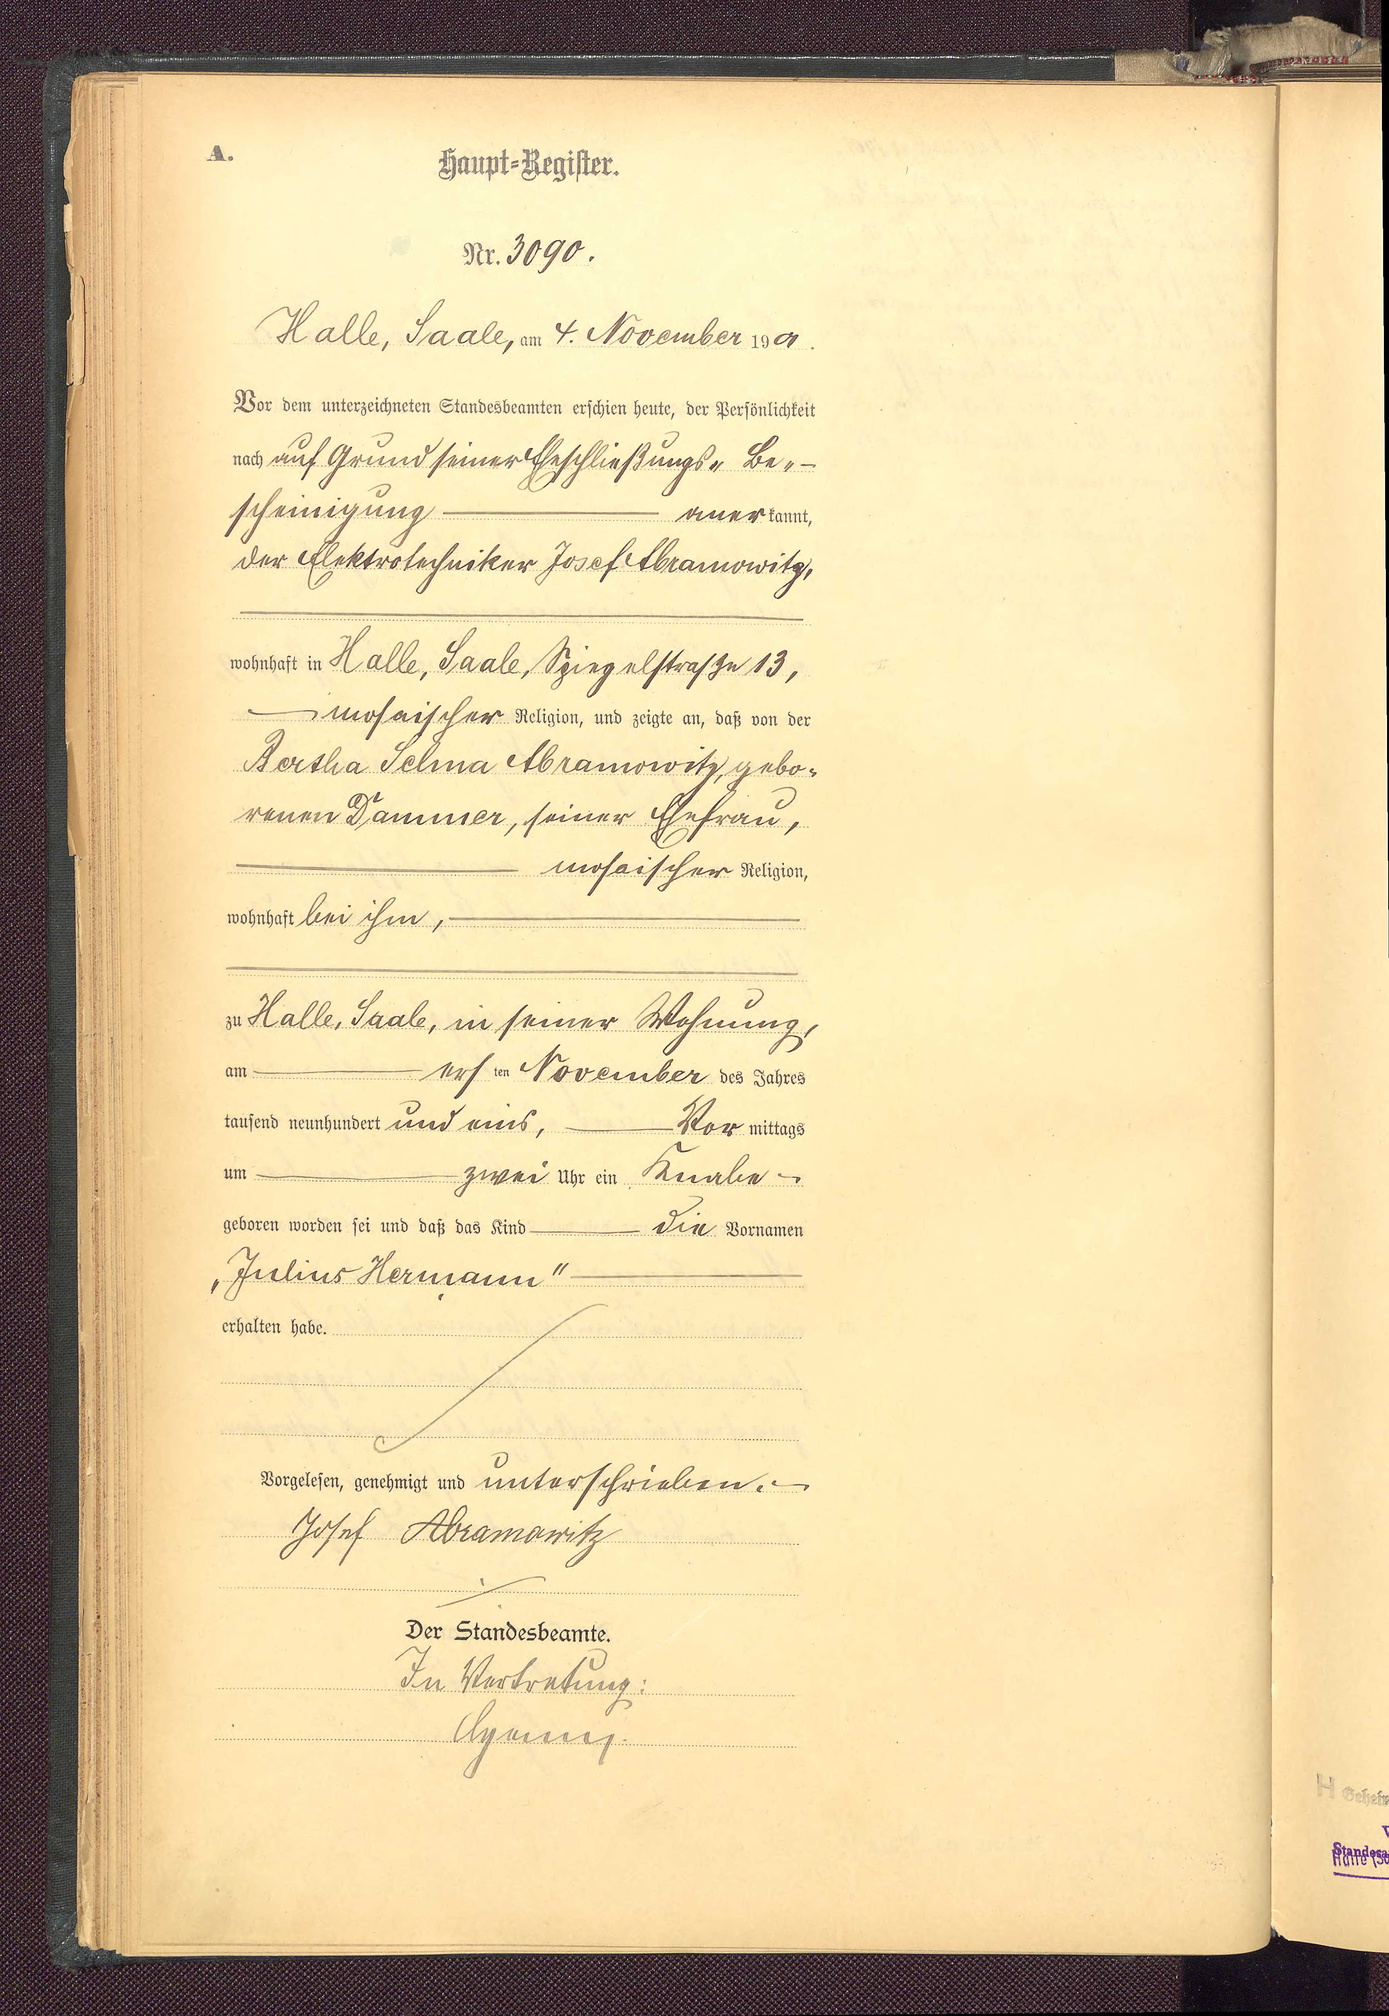 A.
Haupt-Register.
Nr. 3090.
Halle, Saale, am 4. November 1901.
Vor dem unterzeichneten Standesbeamten erschien heute, der Persönlichkeit
nach auf Grund seiner Eheschließungs- Be-
scheinigung anerkannt,
der Elektrotechniker Josef Abramowitz,
wohnhaft in Halle, Saale, Spiegelstraße 13,
mosaischer Religion, und zeigte an, daß von der
Bertha Selma Abramowitz, gebo-
renen Dammer, seiner Ehefrau,
mosaischer Religion,
wohnhaft bei ihm,
zu Halle, Saale, in seiner Wohnung,
am ersten November des Jahres
tausend neunhundert und eins, Vormittags
um zwei Uhr ein Knabe
geboren worden sei und daß das Kind die Vornamen
„Julius Hermann"
erhalten habe.
Vorgelesen, genehmigt und unterschrieben.
Josef Abramowitz
Der Standesbeamte.
In Vertretung:
H Geheim
Standesa
Halle (Sa